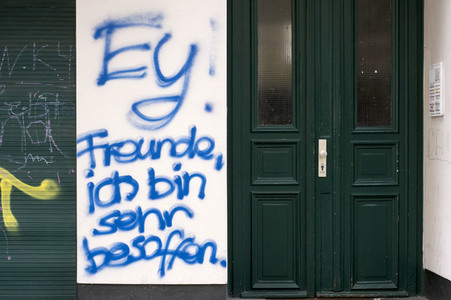 Ey!
Freunde,
ich bin
sehr
besoffen.